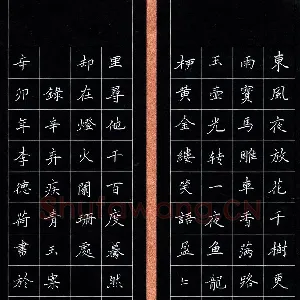 東風夜放花千樹更
雨寶馬雕車香滿路
玉壺光转一夜鱼龍
柳黃金縷笑語盈
里尋他千百度驀然
却在燈火闌珊處
錄辛弃疾青玉案
辛卯年李德荷書於